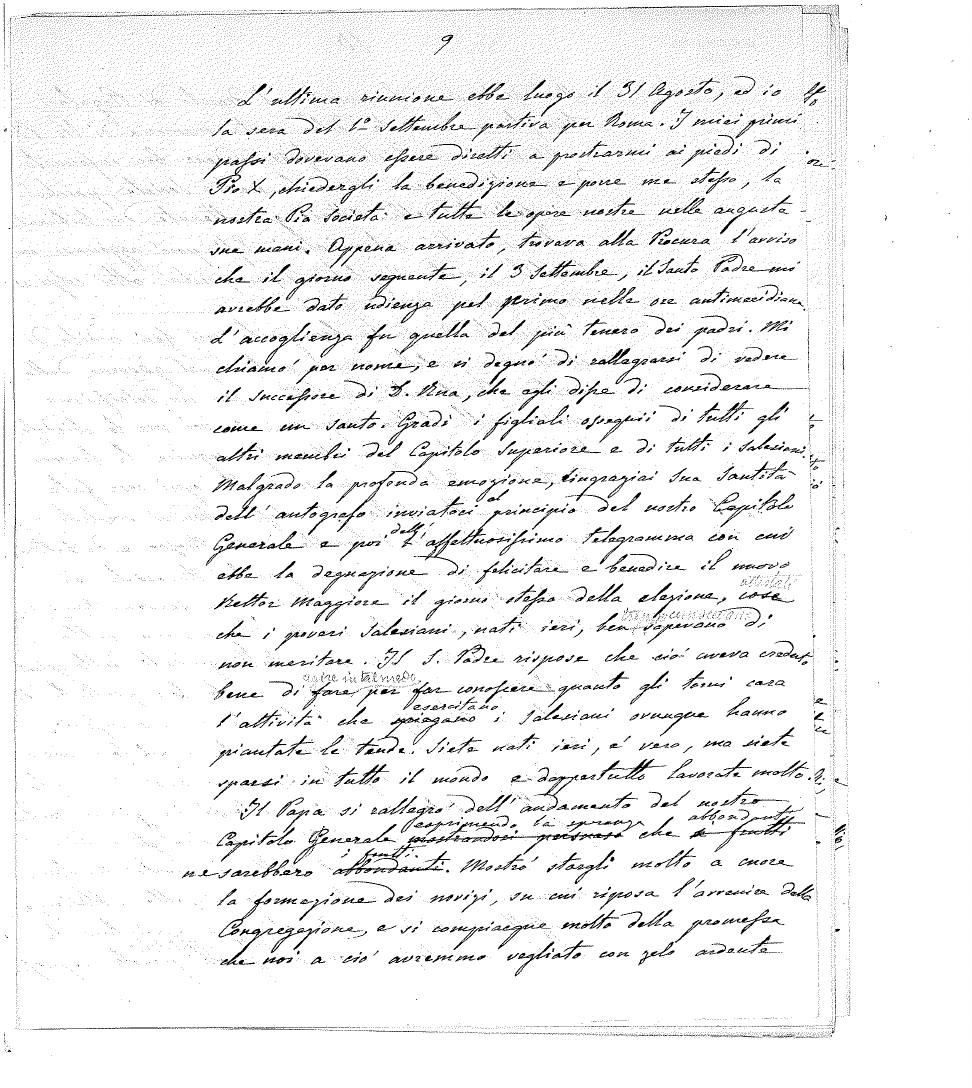 9
L'ultima riunione ebbe luogo il 31 Agosto, ed io
la sera del 1º Settembre partiva per Roma. I miei primi
passi dovevano essere diretti a prostrarmi ai piedi di
Pio X, chiedergli la benedizione e porre me stesso, la
nostra Pia Società e tutte le opere nostre nelle auguste
sue mani. Appena arrivato, trovava alla Procura l'avviso
che il giorno seguente, il 3 Settembre, il Santo Padre mi
avrebbe dato udienza pel primo nelle ore antimeridiane.
L'accoglienza fu quella del più tenero dei padri. Mi
chiamò per nome, e si degnò di rallegrarsi di vedere
il successore di D. Rua, che egli disse di considerare
come un santo. Gradì i figliali ossequii di tutti gli
altri membri del Capitolo Superiore e di tutti i Salesiani.
Malgrado la profonda emozione, ringraziai Sua Santità
dell'autografo inviatoci al principio del nostro Capitolo
Generale e poi dell' l'affettuosissimo telegramma con cui
ebbe la degnazione di felicitare e benedire il nuovo
Rettor Maggiore il giorno stesso della elezione, cose
che i poveri Salesiani, nati ieri, ben sapevano di
non meritare. Il S. Padre rispose che ciò aveva creduto
bene di fare per far conoscere quanto gli torni cara
esercitano
l'attività che spiegano i Salesiani ovunque hanno
piantate le tende. Siete nati ieri, è vero, ma siete
sparsi in tutto il mondo e dappertutto lavorate molto.
Il Papa si rallegrò dell'andamento del nostro
esprimendo la speranza abbondanti
Capitolo Generale mostrandosi persuaso che frutti
ne sarebbero abbondanti. Mostrò stargli molto a cuore
la formazione dei novizi, su cui riposa l'avvenire della
Congregazione, e si compiacque molto della promessa
che noi a ciò avremmo vegliato con zelo ardente